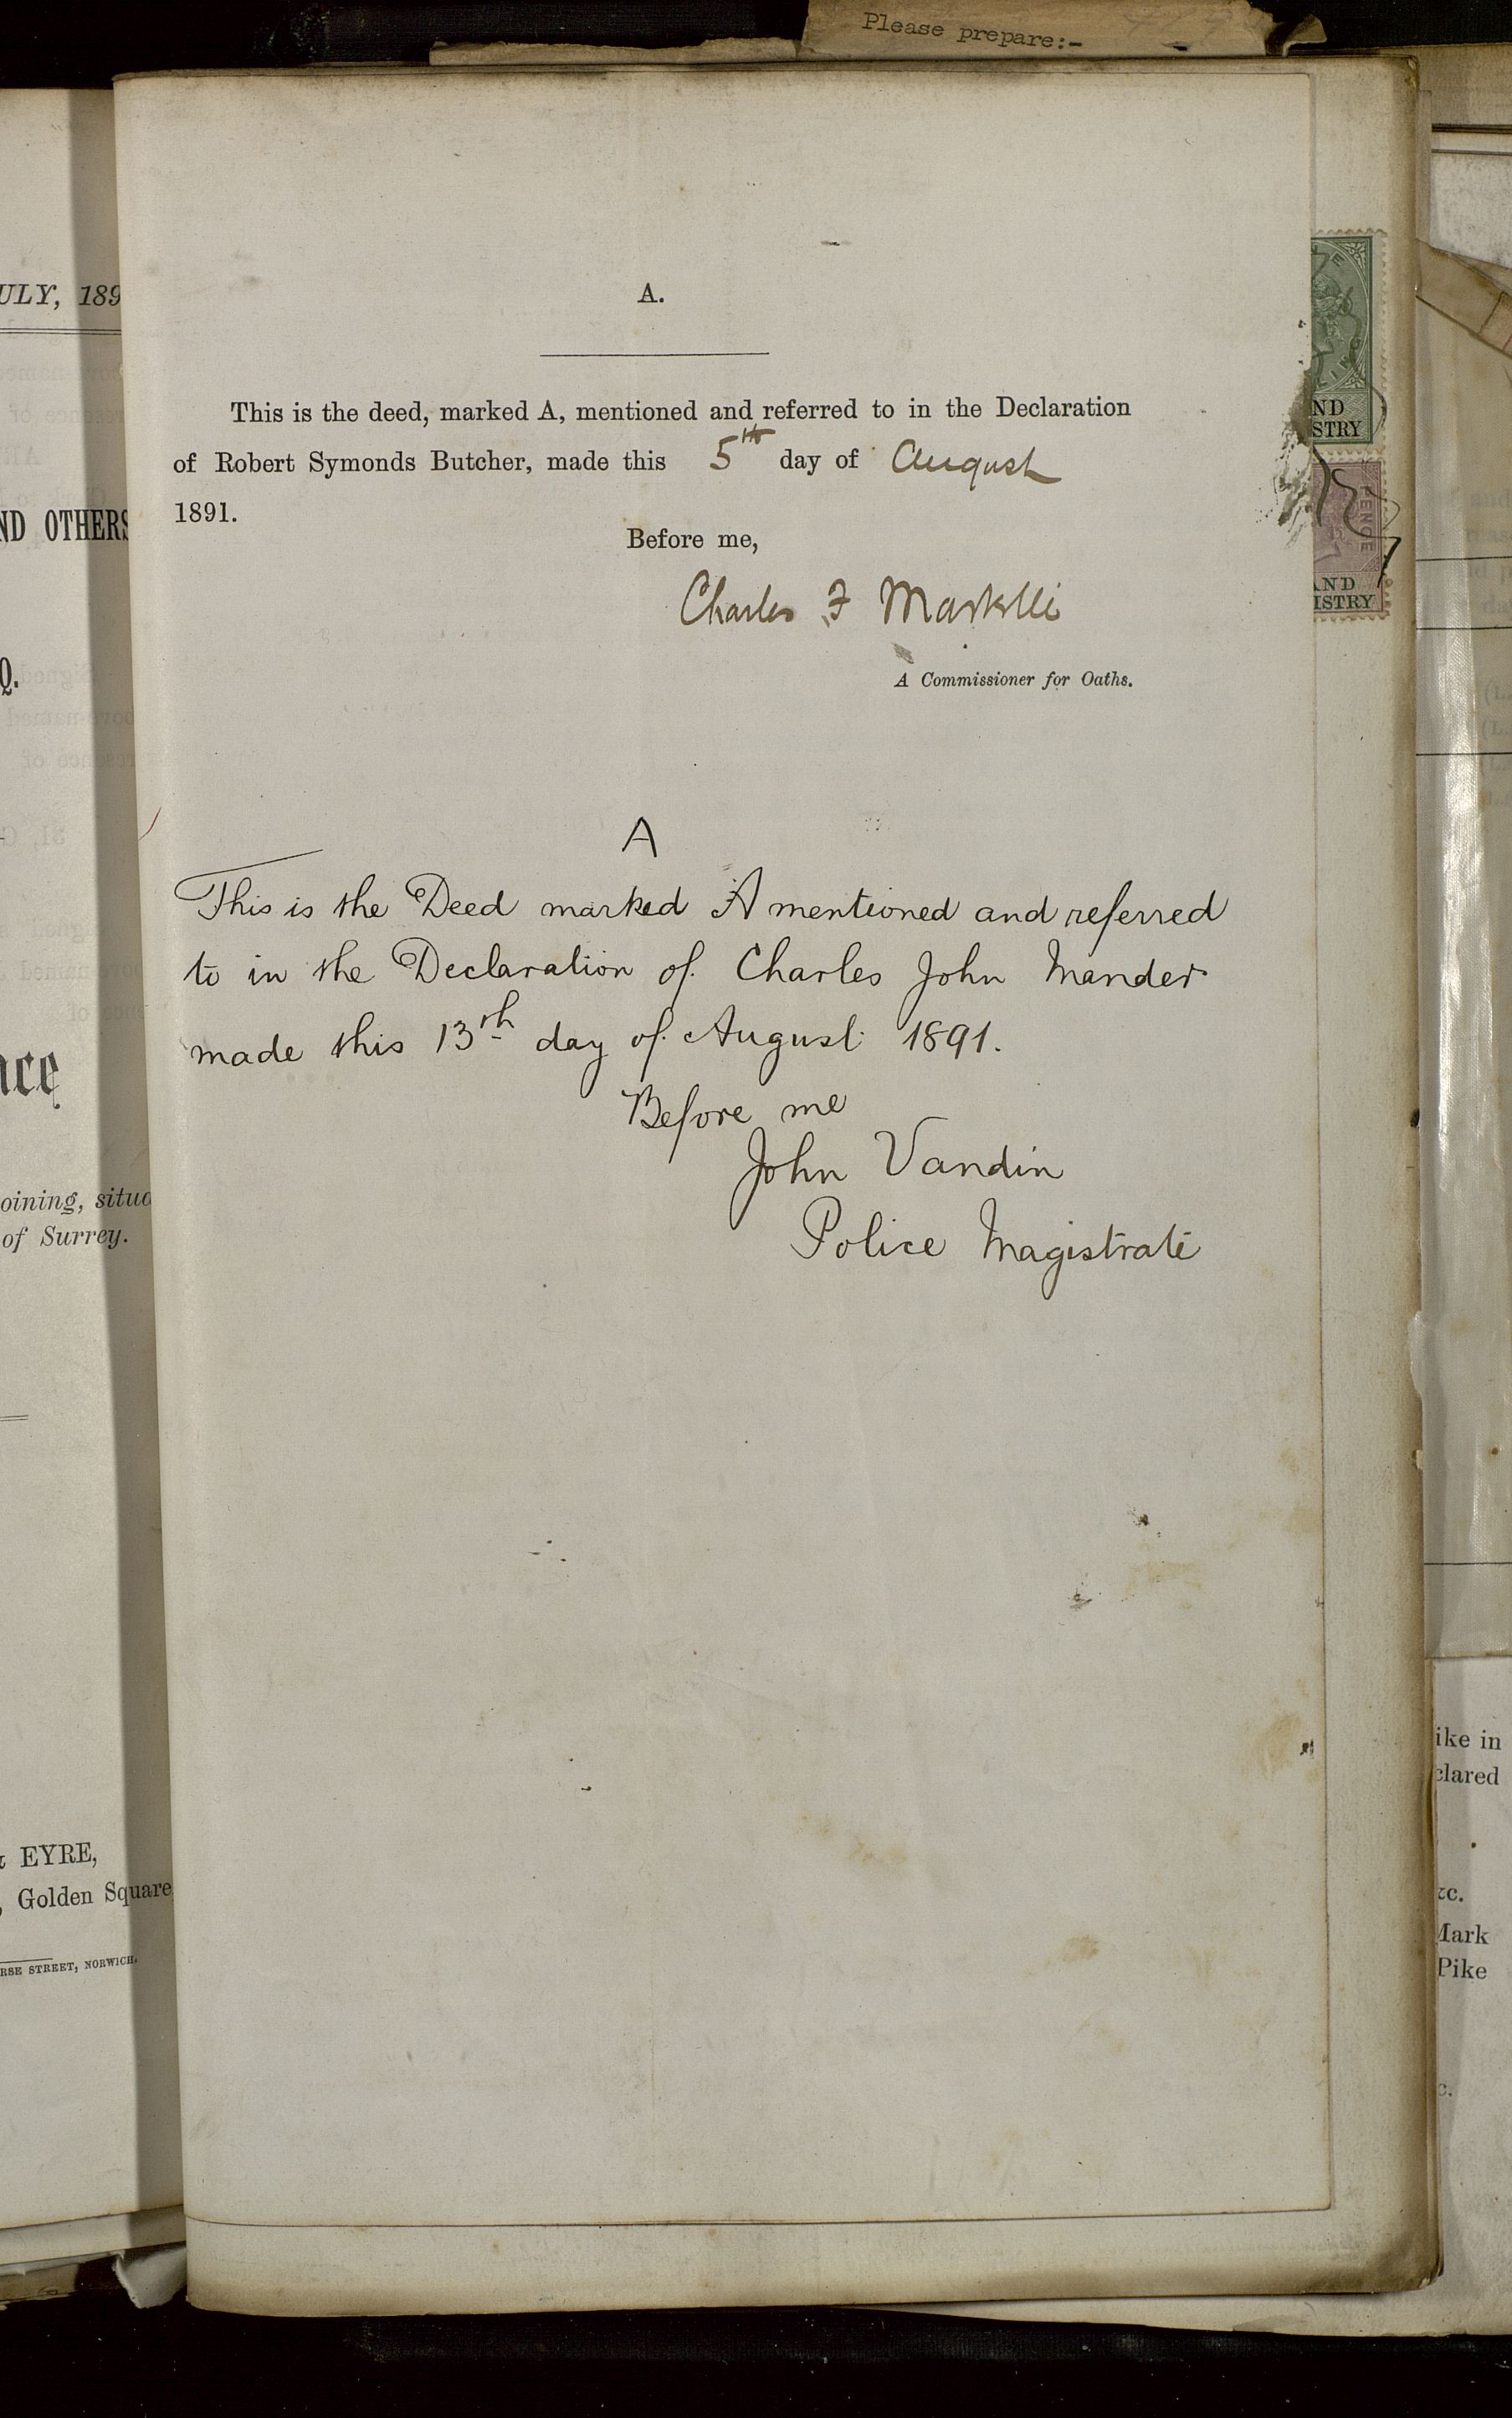 Please prepare:-
A.
This is the deed, marked A, mentioned and referred to in the Declaration
of Robert Symonds Butcher, made this 5th day of August
1891.
Before me,
Charles F
A Commissioner for Oaths.
A
This is the Deed marked A mentioned and referred
to in the Declaration of Charles John Mander
made this 13th day of August 1891.
Before me
John Vandin
Police Magistrate
ULY, 189
ND OTHERS
Q.
oining, situa
of Surrey.
EYRE,
, Golden Square
RSE STREET, NORWICH.
ND
STRY
PENCE
AND
ISTRY
ike in
clared
&c.
Mark
Pike
c.